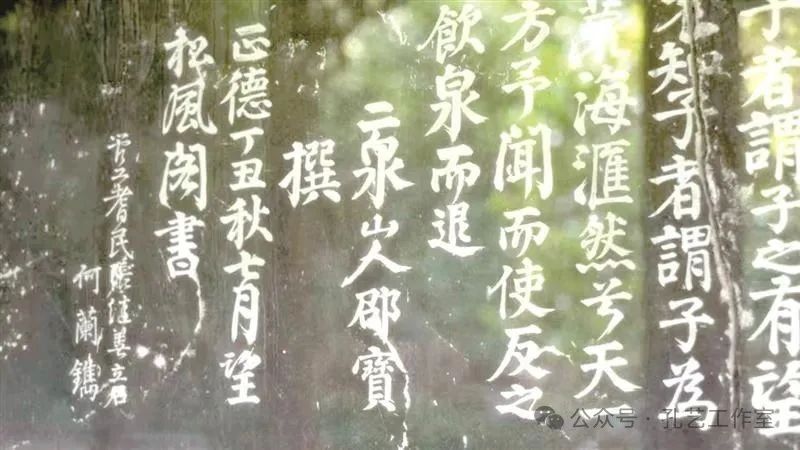 子者謂子之有望
不知子者謂子為
海滙然兮天一
方予聞而使反之
飲泉而退
二泉山人邵寶
撰
正德丁丑秋七月望
松風閣書
民善立石
何蘭鐫
公众号·孔艺工作室